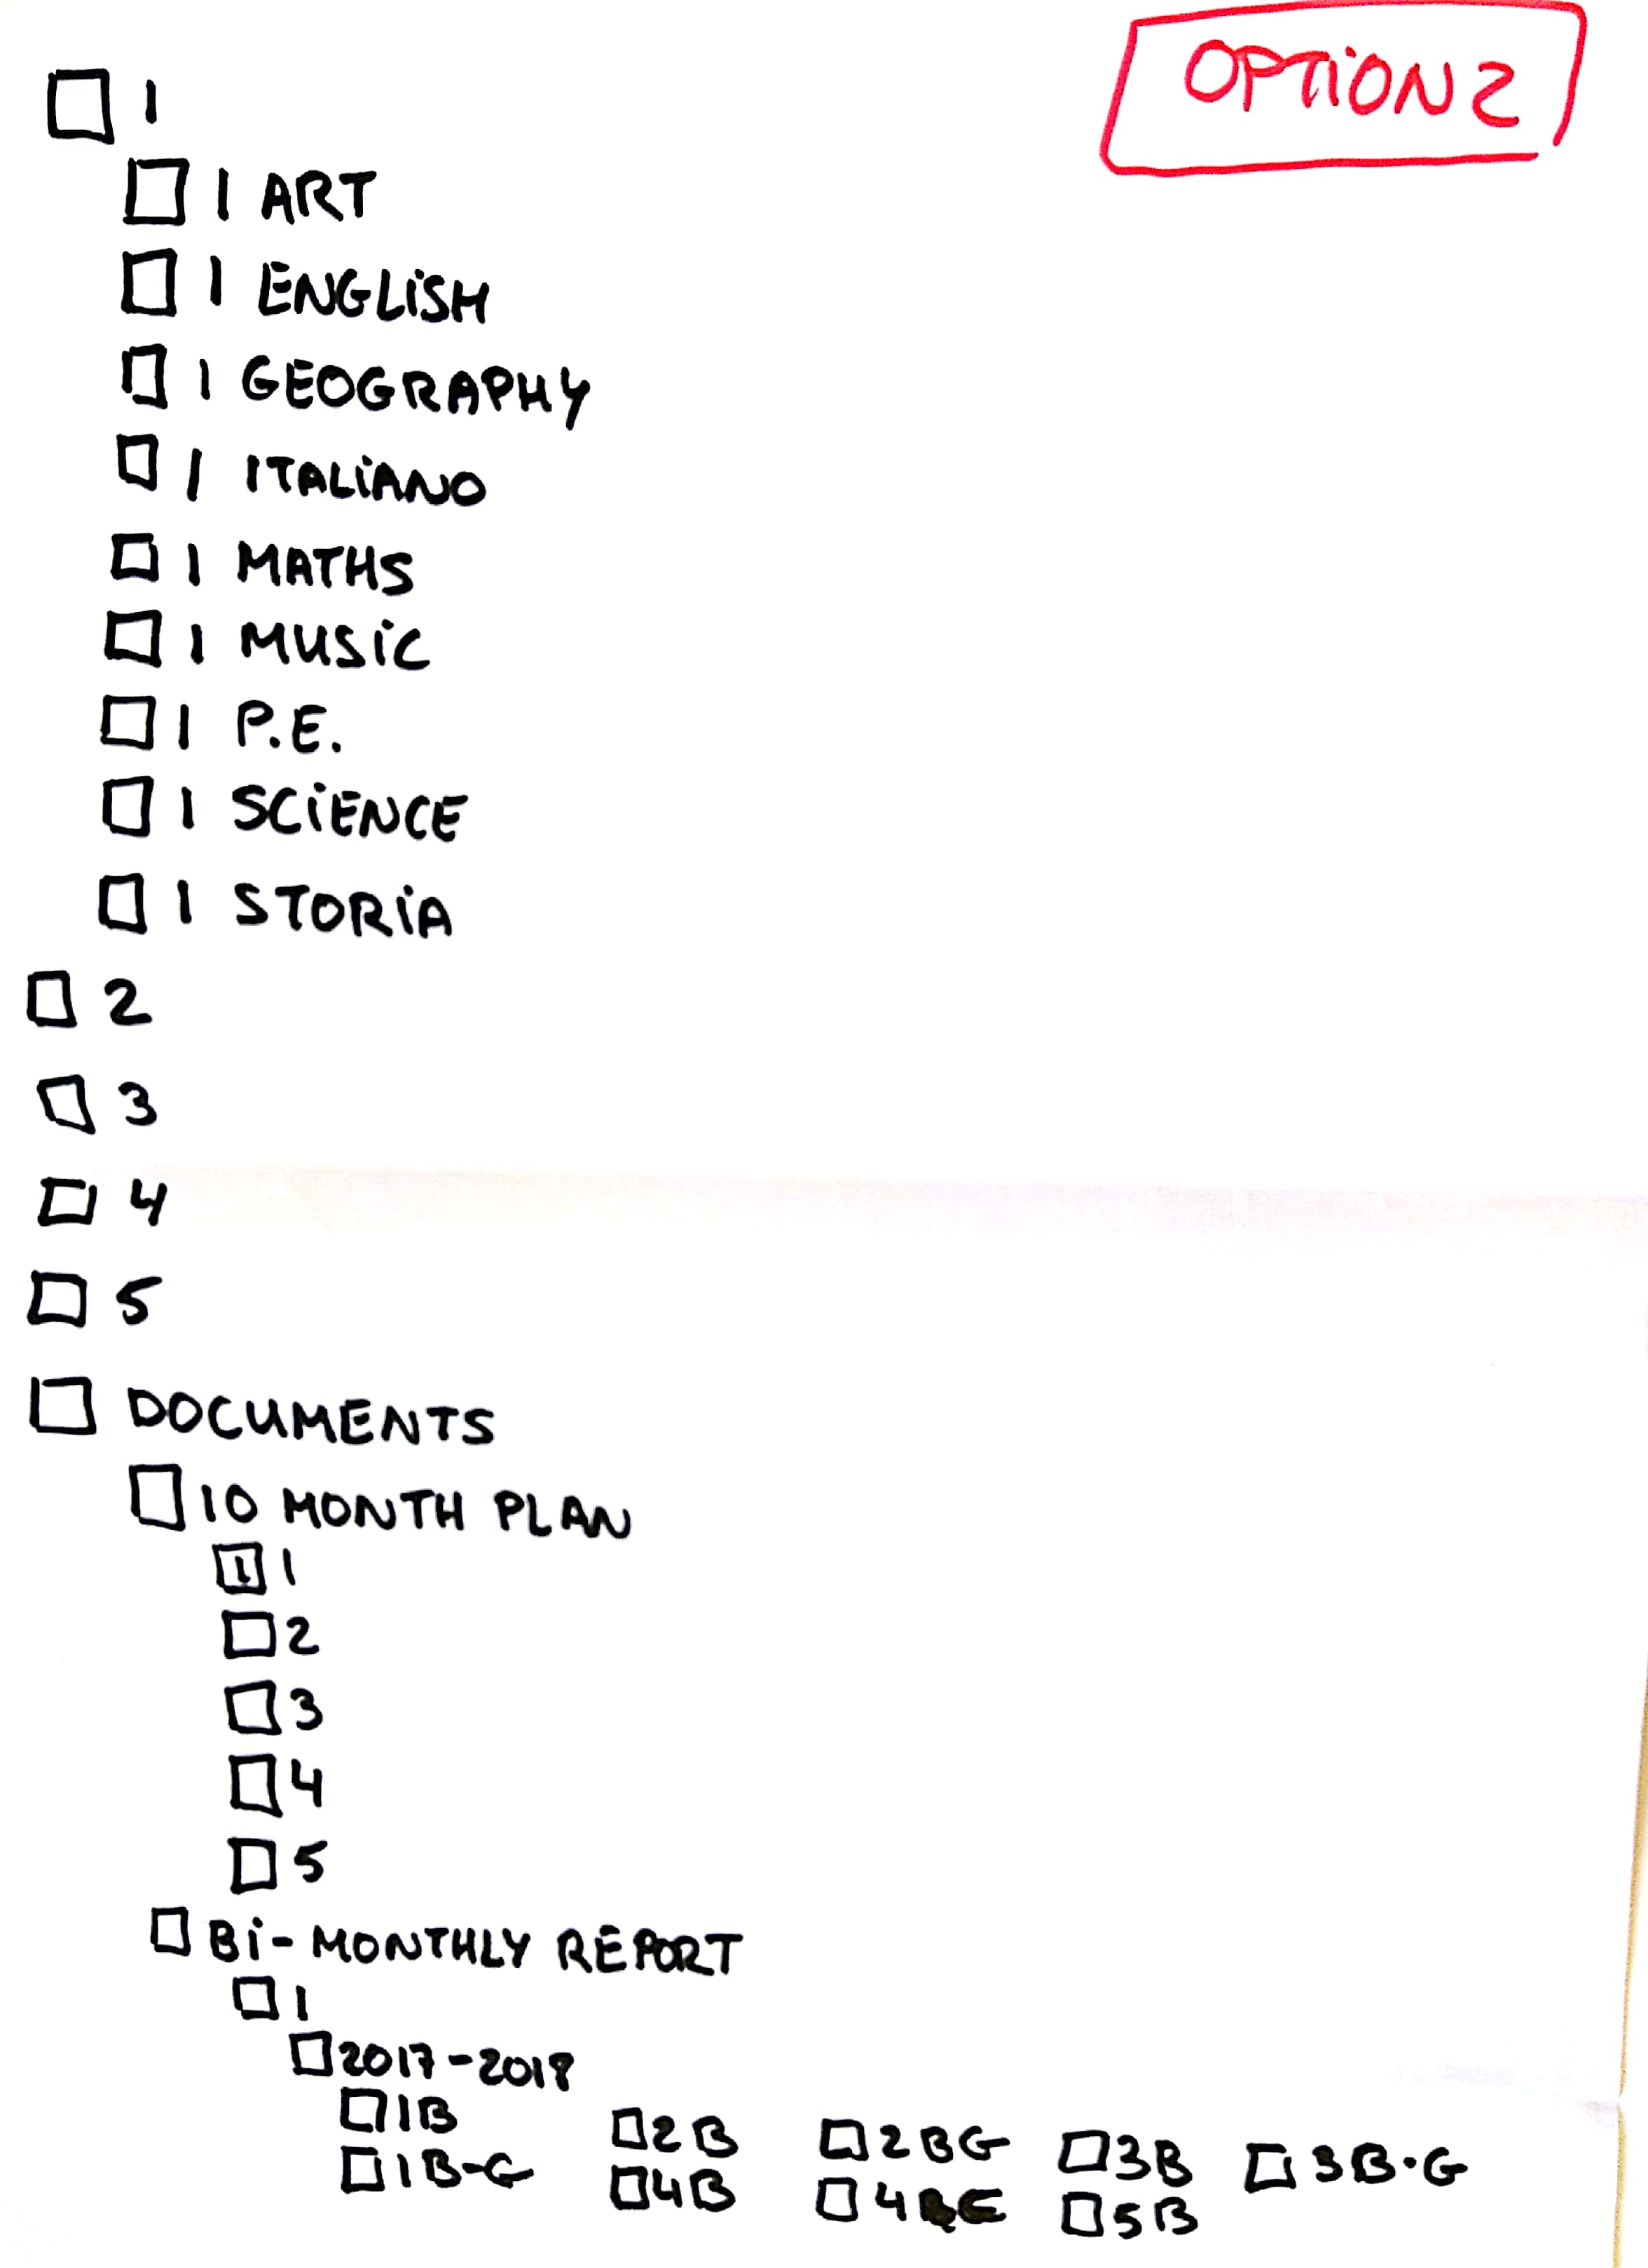 OPTION 2
1
1 ART
1 ENGLISH
1 GEOGRAPHY
1 ITALIANO
1 MATHS
1 MUSIC
1 P.E.
1 SCIENCE
1 STORIA
2
3
4
5
DOCUMENTS
10 MONTH PLAN
1
2
3
4
5
Bi-MONTHLY REPORT
1
2017-2018
1B
2B 2BG 3B 3B-G
1B-G
4B 5B